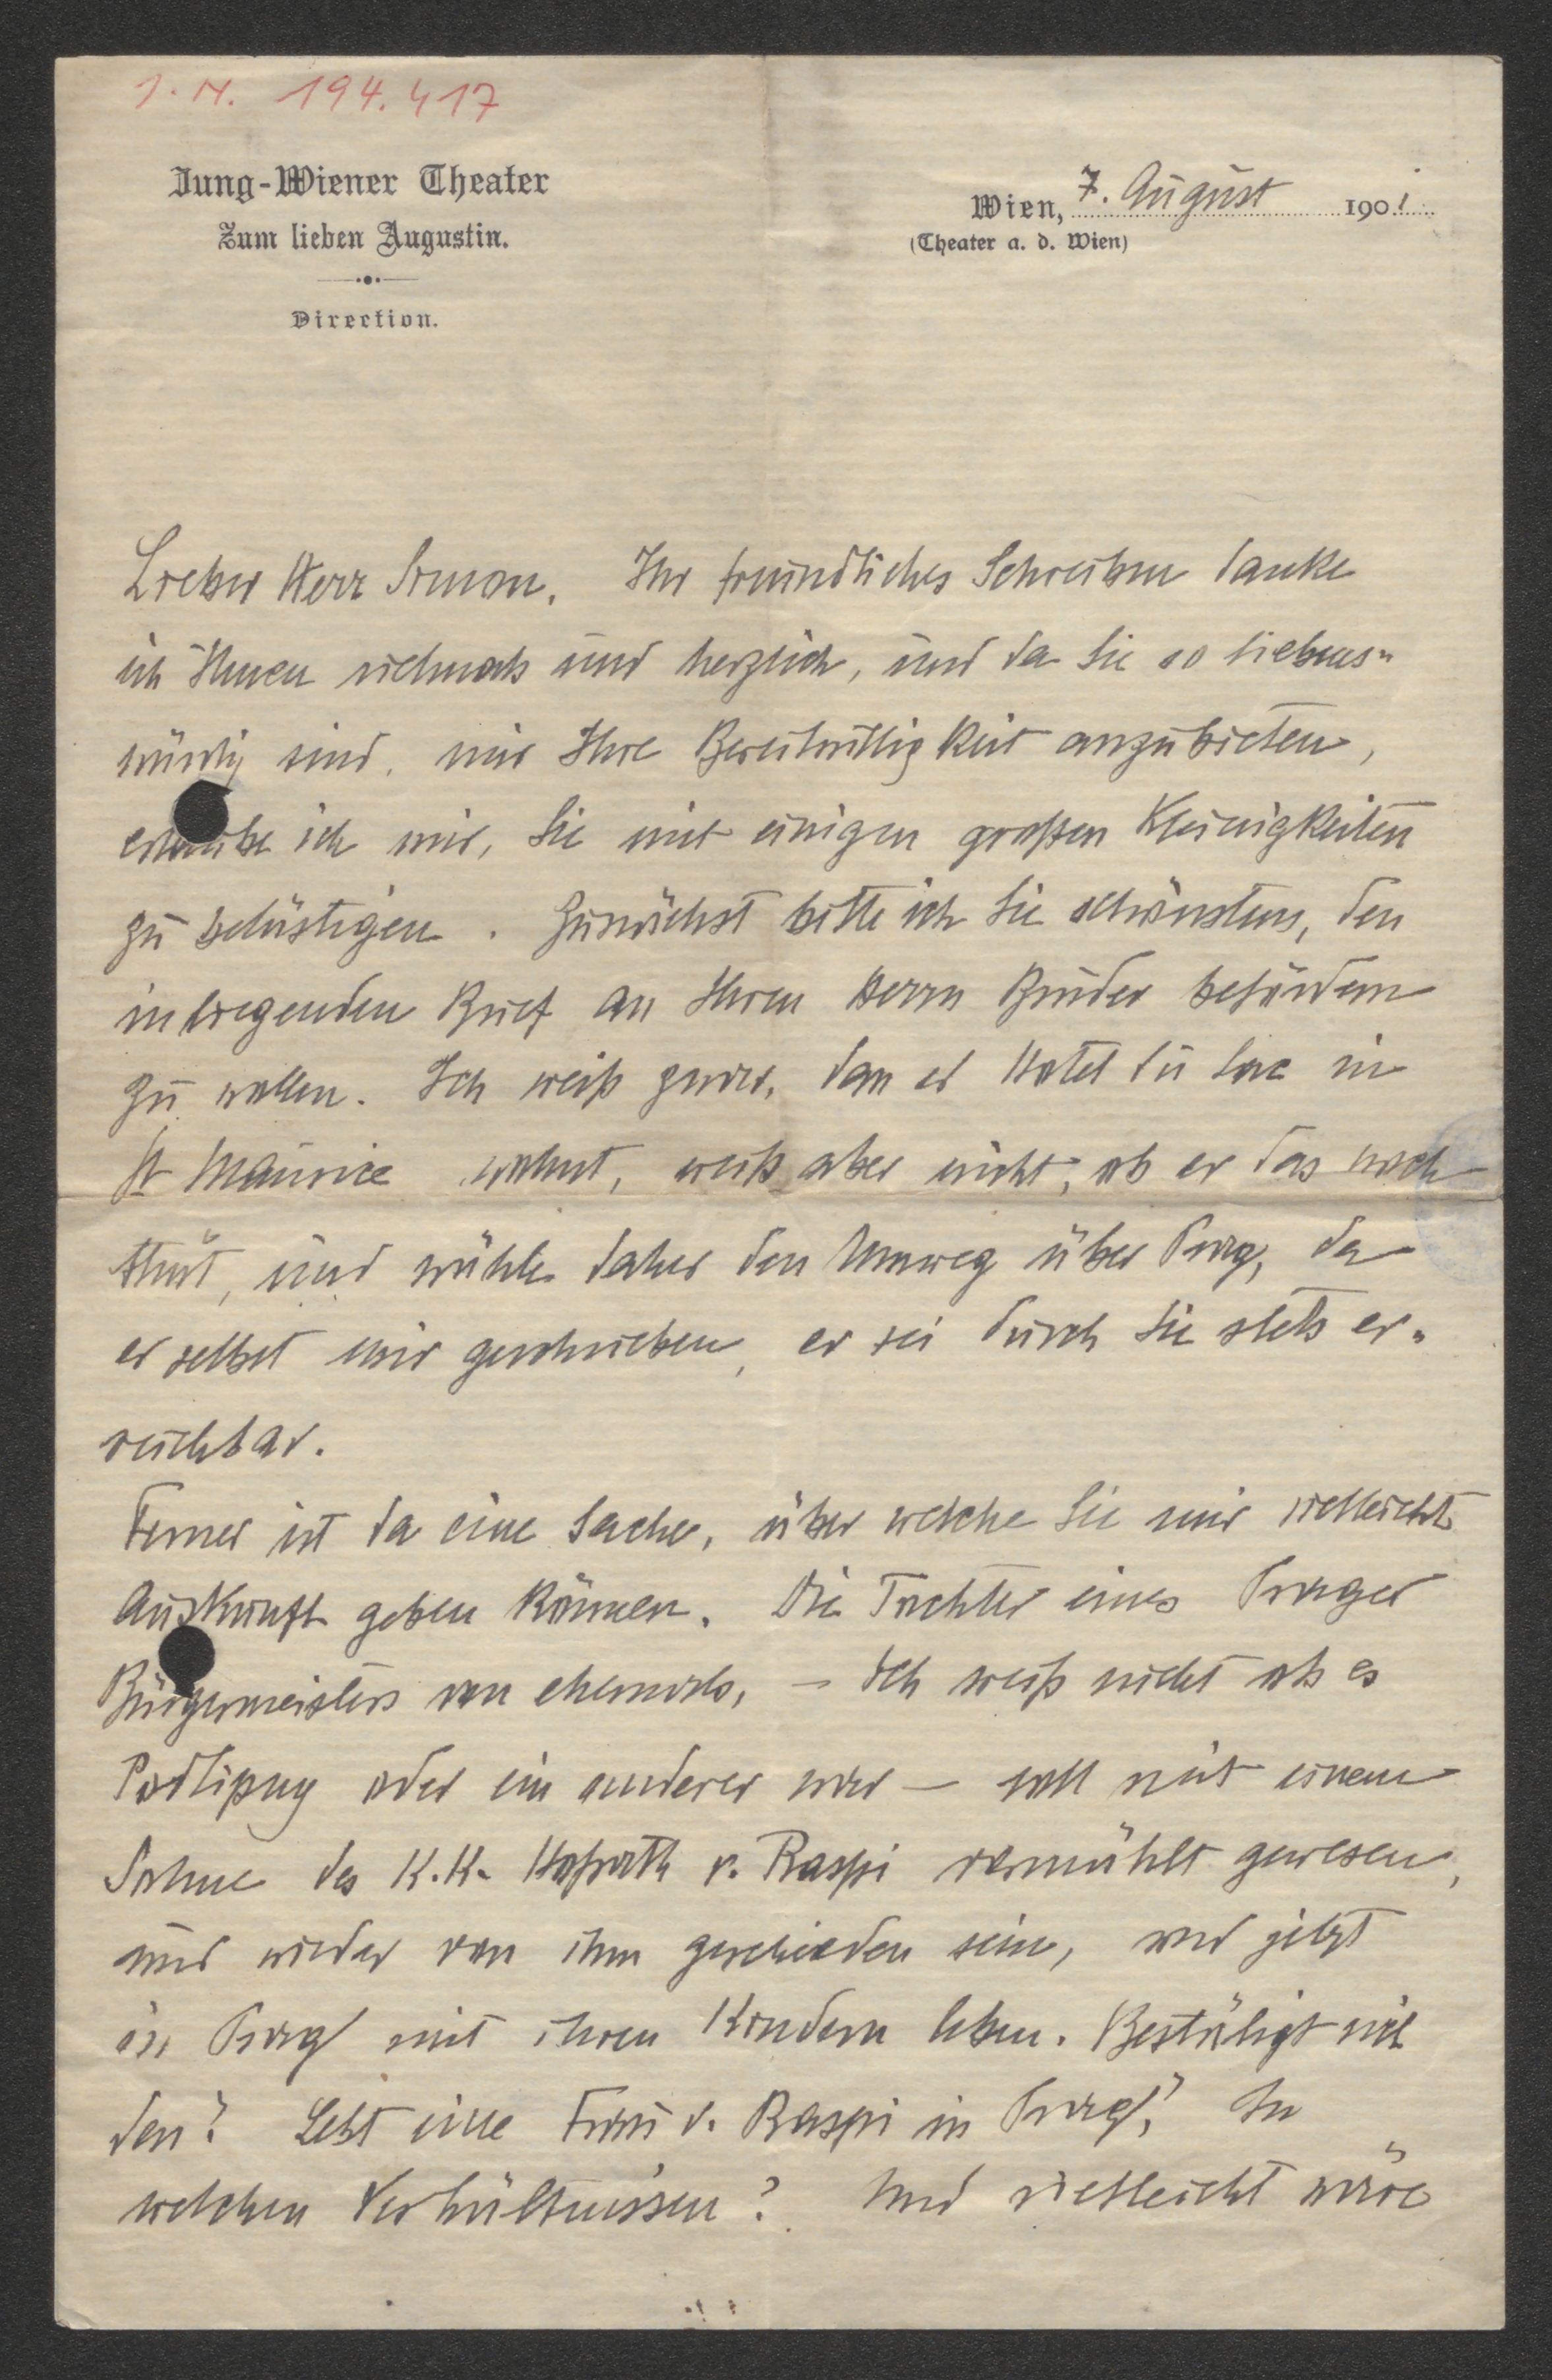 I. N. 194.417
Jung-Wiener Theater
Zum lieben Augustin.
Direction.
Wien, 7. August 1901
(Theater a. d. Wien)
Lieber Herr Simon, Ihr freundliches Schreiben danke
ich Ihnen vielmals und herzlich, und da Sie so liebens-
würdig sind, mir Ihre Bereitwilligkeit anzubieten,
erlaube ich mir, Sie mit einigen großen Kleinigkeiten
zu belästigen. Zunächst bitte ich Sie schönstens, den
inliegenden Brief an Ihren Herrn Bruder befördern
zu wollen. Ich weiß zwar, dass er Hotel du Lac in
St Maurice wohnt, weiß aber nicht, ob er das noch
thut, und wähle daher den Umweg über Prag, da
er selbst mir geschrieben, er sei durch Sie stets er-
reichbar.
Ferner ist da eine Sache, über welche Sie mir vielleicht
Auskunft geben können. Die Tochter eines Prager
Bürgermeisters von ehemals, – ich weiß nicht ob es
Podlipny oder ein anderer war – soll mit einem
Sohne des K.K. Hofrath v. Raspi vermählt gewesen,
und wieder von ihm geschieden sein, und jetzt
in Prag mit ihren Kindern leben. Bestätigt sich
den? Lebt eine Frau v. Raspi in Prag? In
welchen Verhältnissen? Und vielleicht wäre